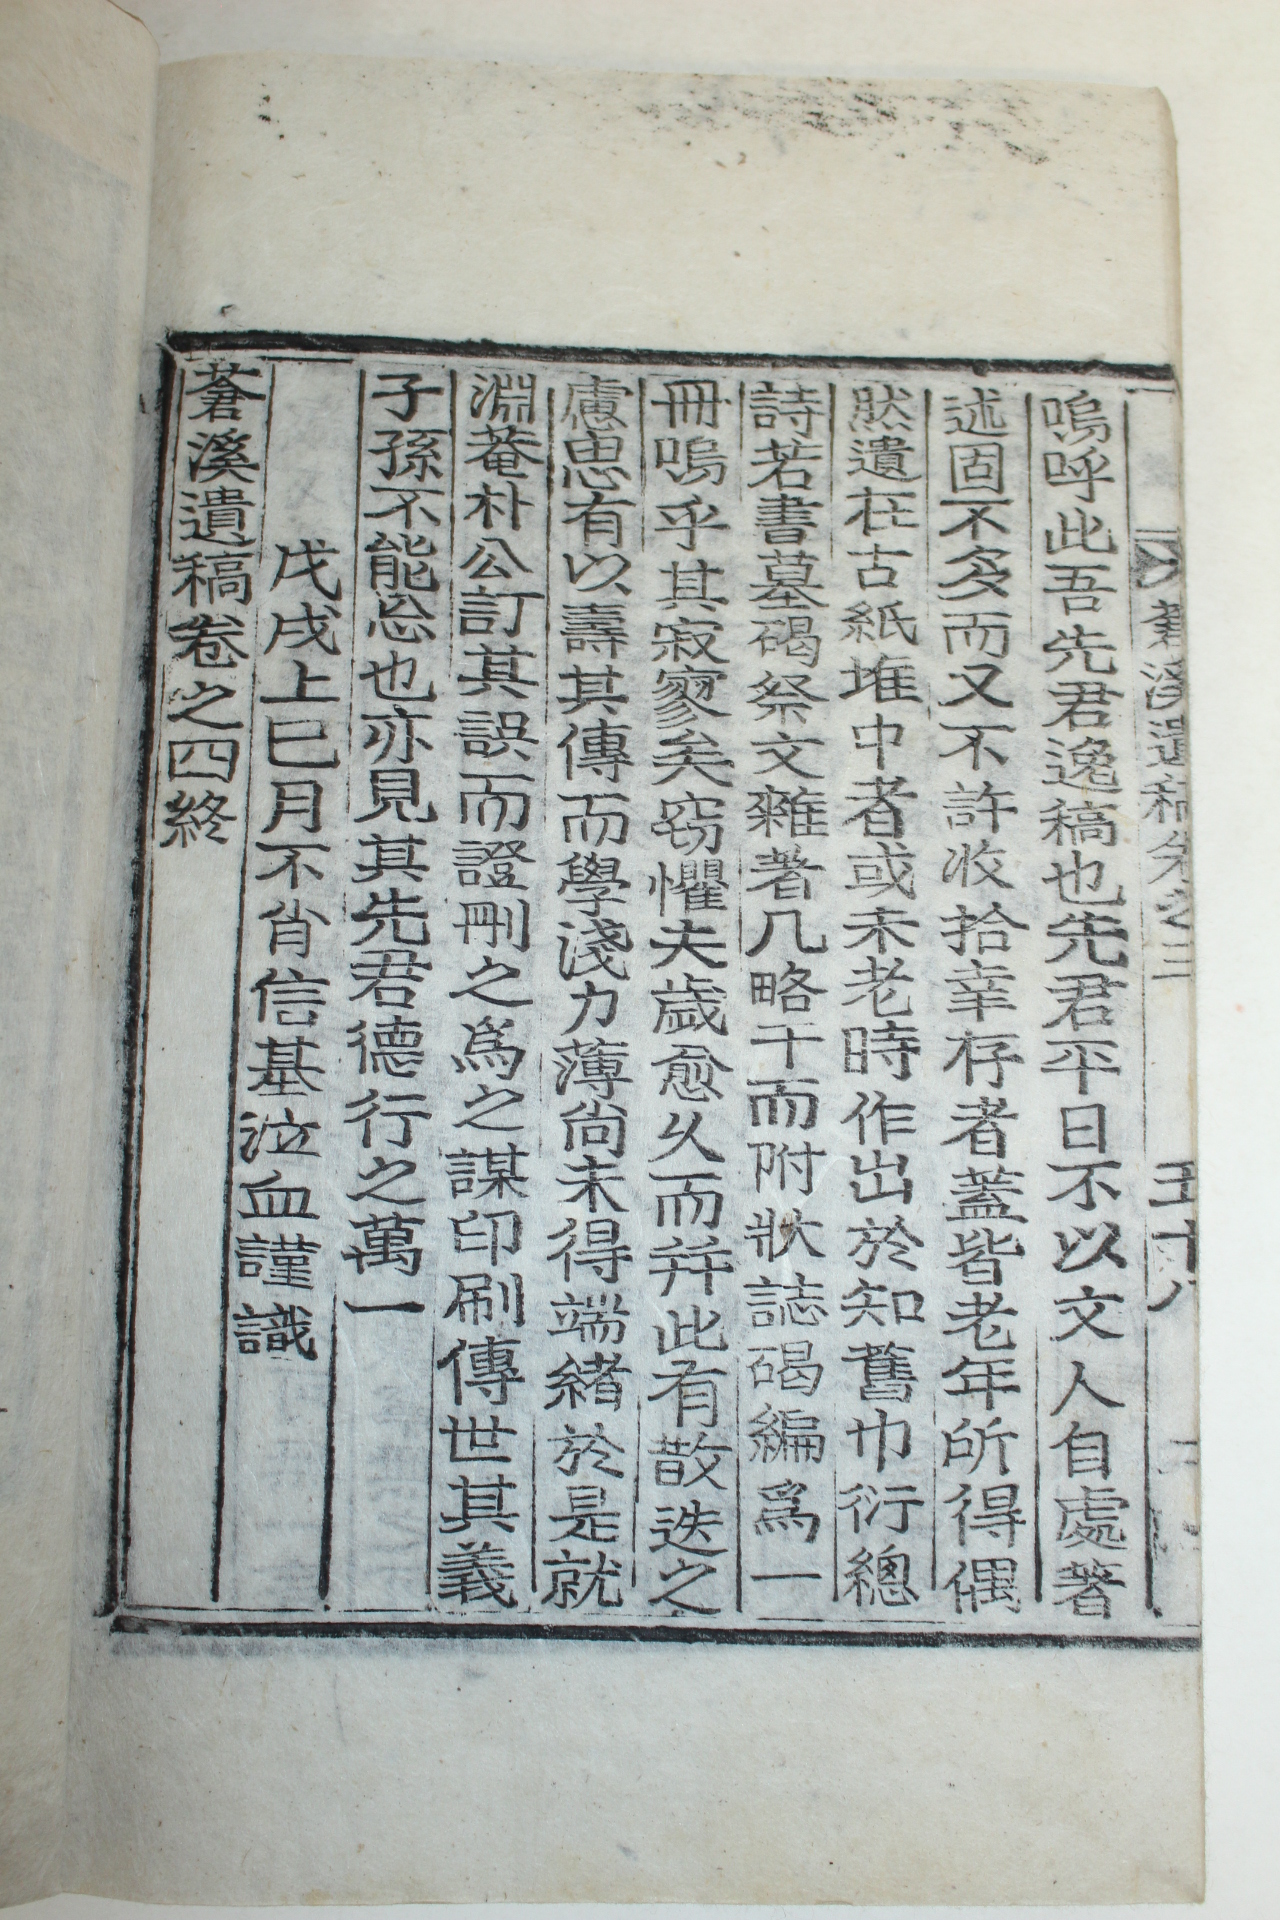 蒼溪遺稿卷之三
五十八
嗚呼此吾先君逸稿也先君平日不以文人自處著
述固不多而又不許收拾幸存者蓋皆老年所得偶
然遺在古紙堆中者或未老時作出於知舊巾衍總
詩若書墓碣祭文雜著凡略干而附狀誌碣編爲一
冊嗚乎其寂寥矣窃懼夫歲愈久而幷此有散迭之
慮思有以壽其傳而學淺力薄尙未得端緖於是就
淵菴朴公訂其誤而證刪之爲之謀印刷傳世其義
子孫不能忘也亦見其先君德行之萬一
戊戌上巳月不肖信基泣血謹識
蒼溪遺稿卷之四終